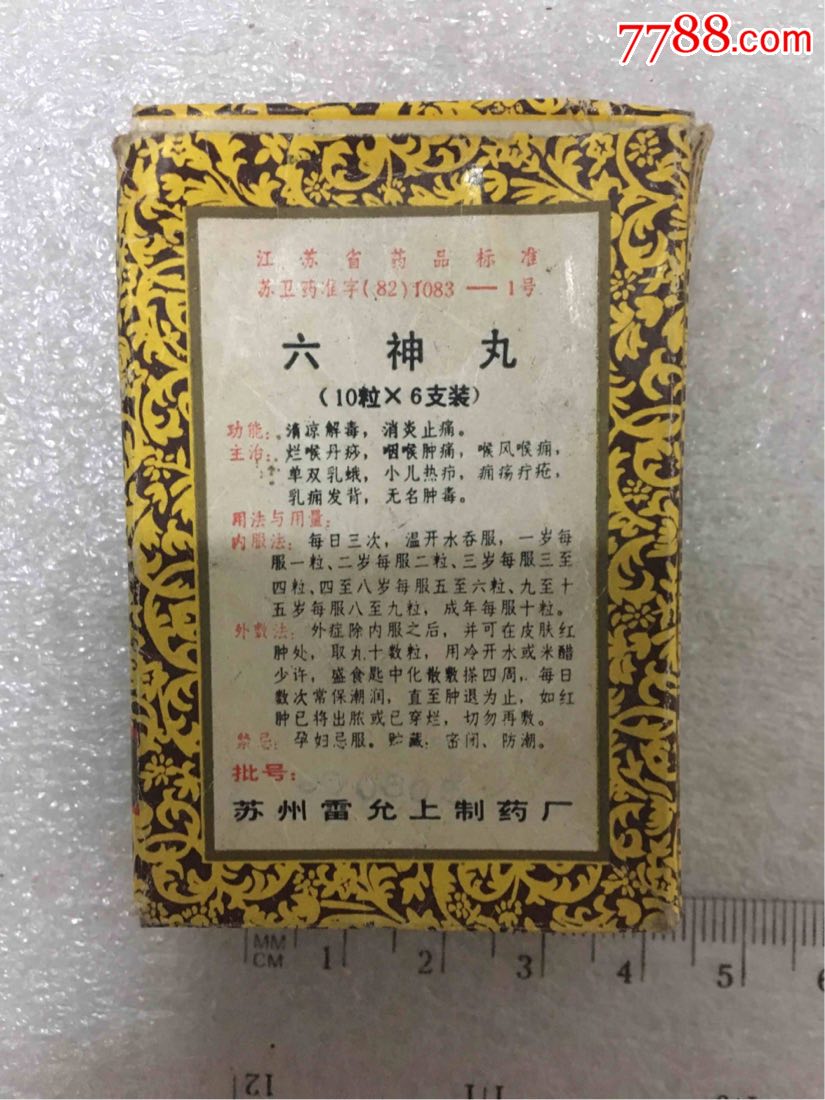 7788.com
江苏省药品标准
苏卫药准字(82)1083—1号
六神丸
(10粒×6支装)
功能：清凉解毒，消炎止痛。
主治：烂喉丹痧，咽喉肿痛，喉风喉痈，
单双乳蛾，小儿热疖，痈疡疔疮，
乳痈发背，无名肿毒。
用法与用量：
内服法：每日三次，温开水吞服，一岁每
服一粒、二岁每服二粒、三岁每服三至
四粒、四至八岁每服五至六粒、九至十
五岁每服八至九粒，成年每服十粒。
外敷法：外症除内服之后，并可在皮肤红
肿处，取丸十数粒，用冷开水或米醋
少许，盛食匙中化散敷搽四周，每日
数次常保潮润，直至肿退为止，如红
肿已将出脓或已穿烂，切勿再敷。
禁忌：孕妇忌服。贮藏：密闭、防潮。
批号：
苏州雷允上制药厂
MM
CM
1 2 3 4 5 6
12